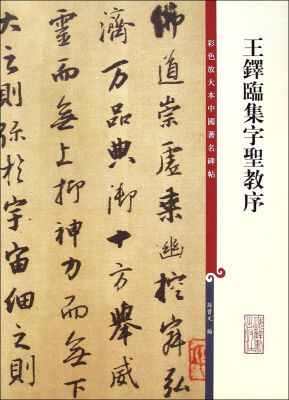 王鐸臨集字聖教序
彩色放大本中國著名碑帖
孫寶文 編
佛道崇虛乘幽控寂弘
濟万品典御十方舉威
靈而無上抑神力而無下
大之則彌於宇宙細之則